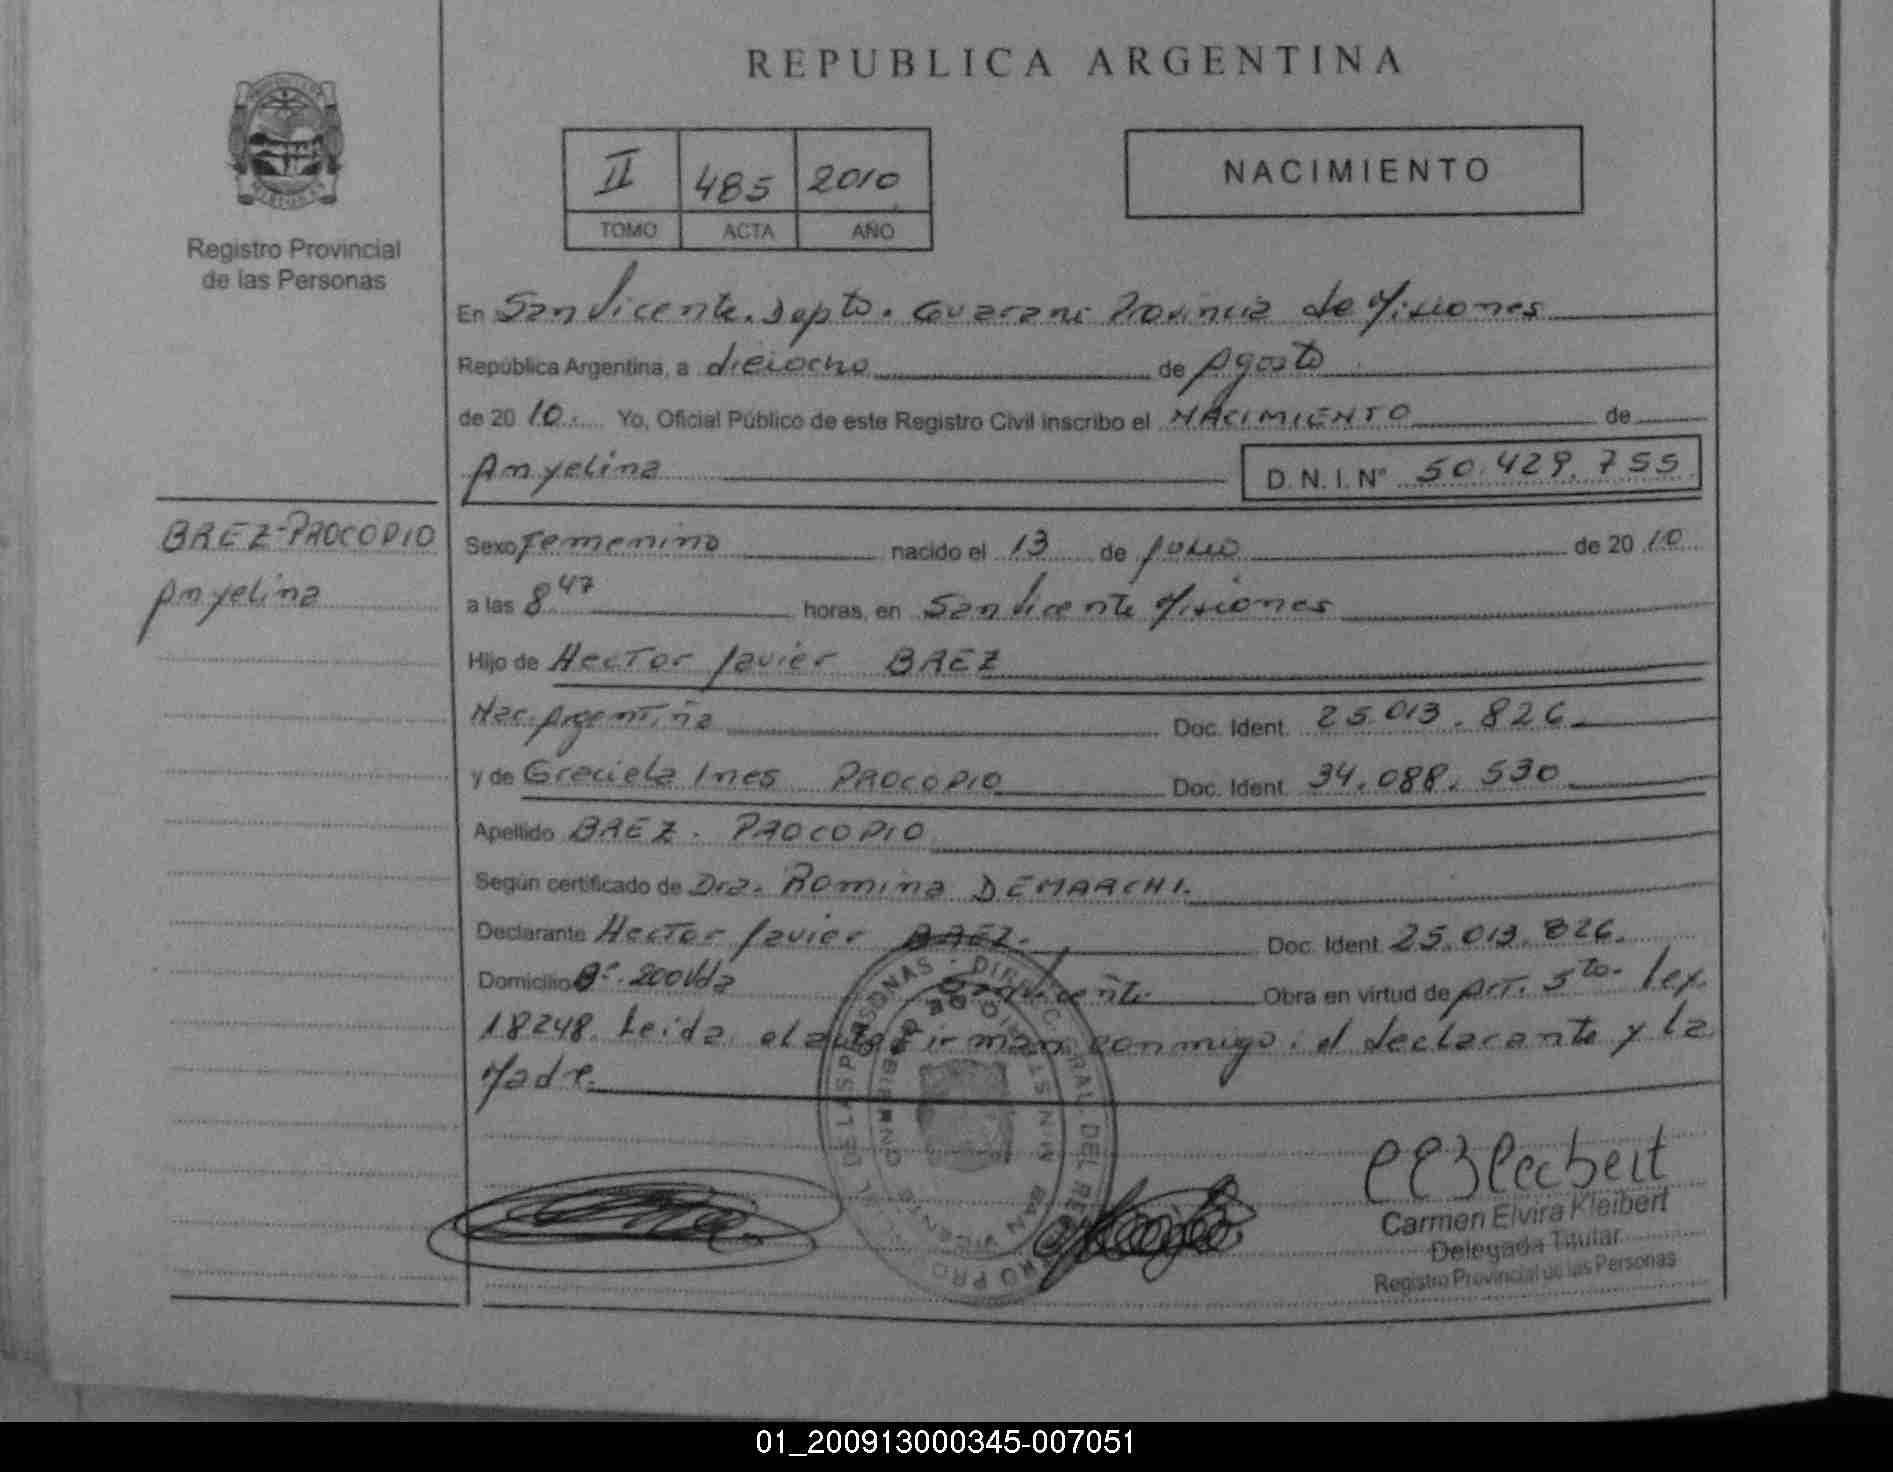 REPUBLICA ARGENTINA
II 485 2010
TOMO ACTA AÑO
NACIMIENTO
Registro Provincial
de las Personas
En San Vicente. Depto. Guarani Provincia de Misiones
República Argentina, a dieiocho de Agosto
de 20 10. Yo, Oficial Público de este Registro Civil inscribo el NACIMIENTO de
Anyelina D. N. I. Nº 50.429.755
BAEZ-PROCOPIO
Anyelina
Sexo Femenino nacido el 13 de Julio de 20 10
a las 8 47 horas, en San Vicente Misiones
Hijo de Hector Javier BAEZ
Nac. Argentina Doc. Ident. 25.013.826
y de Graciela Ines PROCOPIO Doc. Ident. 34.088.530
Apellido BAEZ. PROCOPIO
Según certificado de Dra. Romina DEMARCHI.
Declarante Hector Javier BAEZ. Doc. Ident. 25.013.826.
Domicilio Bº. 200 Vda San Vicente Obra en virtud de Art. 5to. Ley
18248. Leida el acta firman conmigo: el declarante y la
Madre.
Carmen Elvira Kleibert
Delegada Titular
Registro Provincial de las Personas
01_200913000345-007051